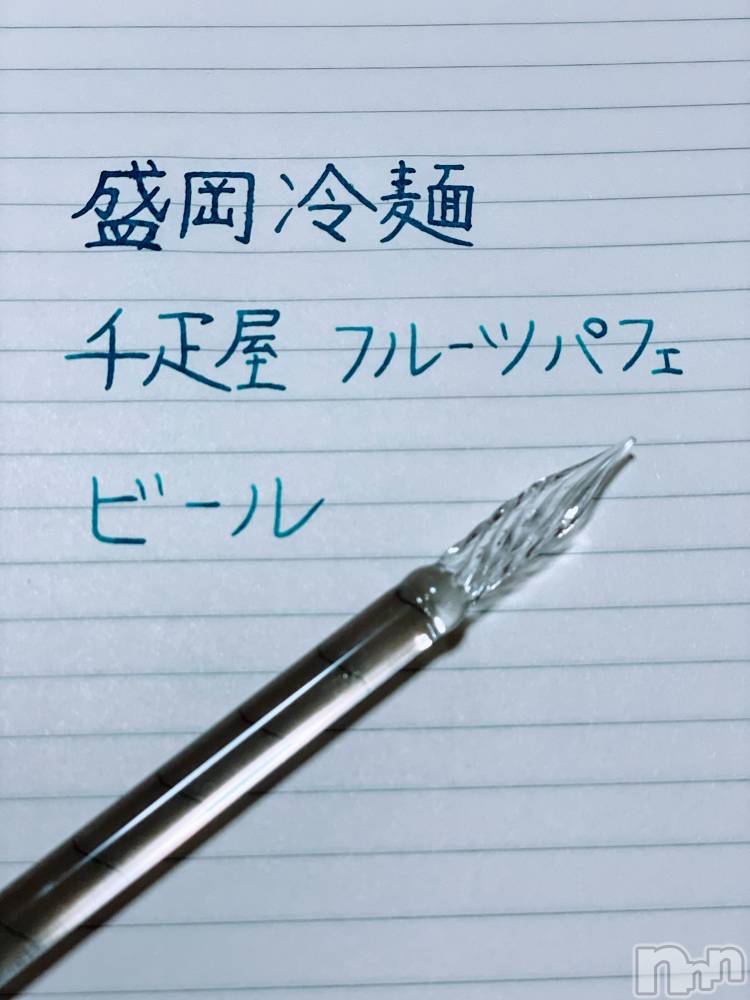 盛岡冷麺
千疋屋 フルーツパフェ
ビール